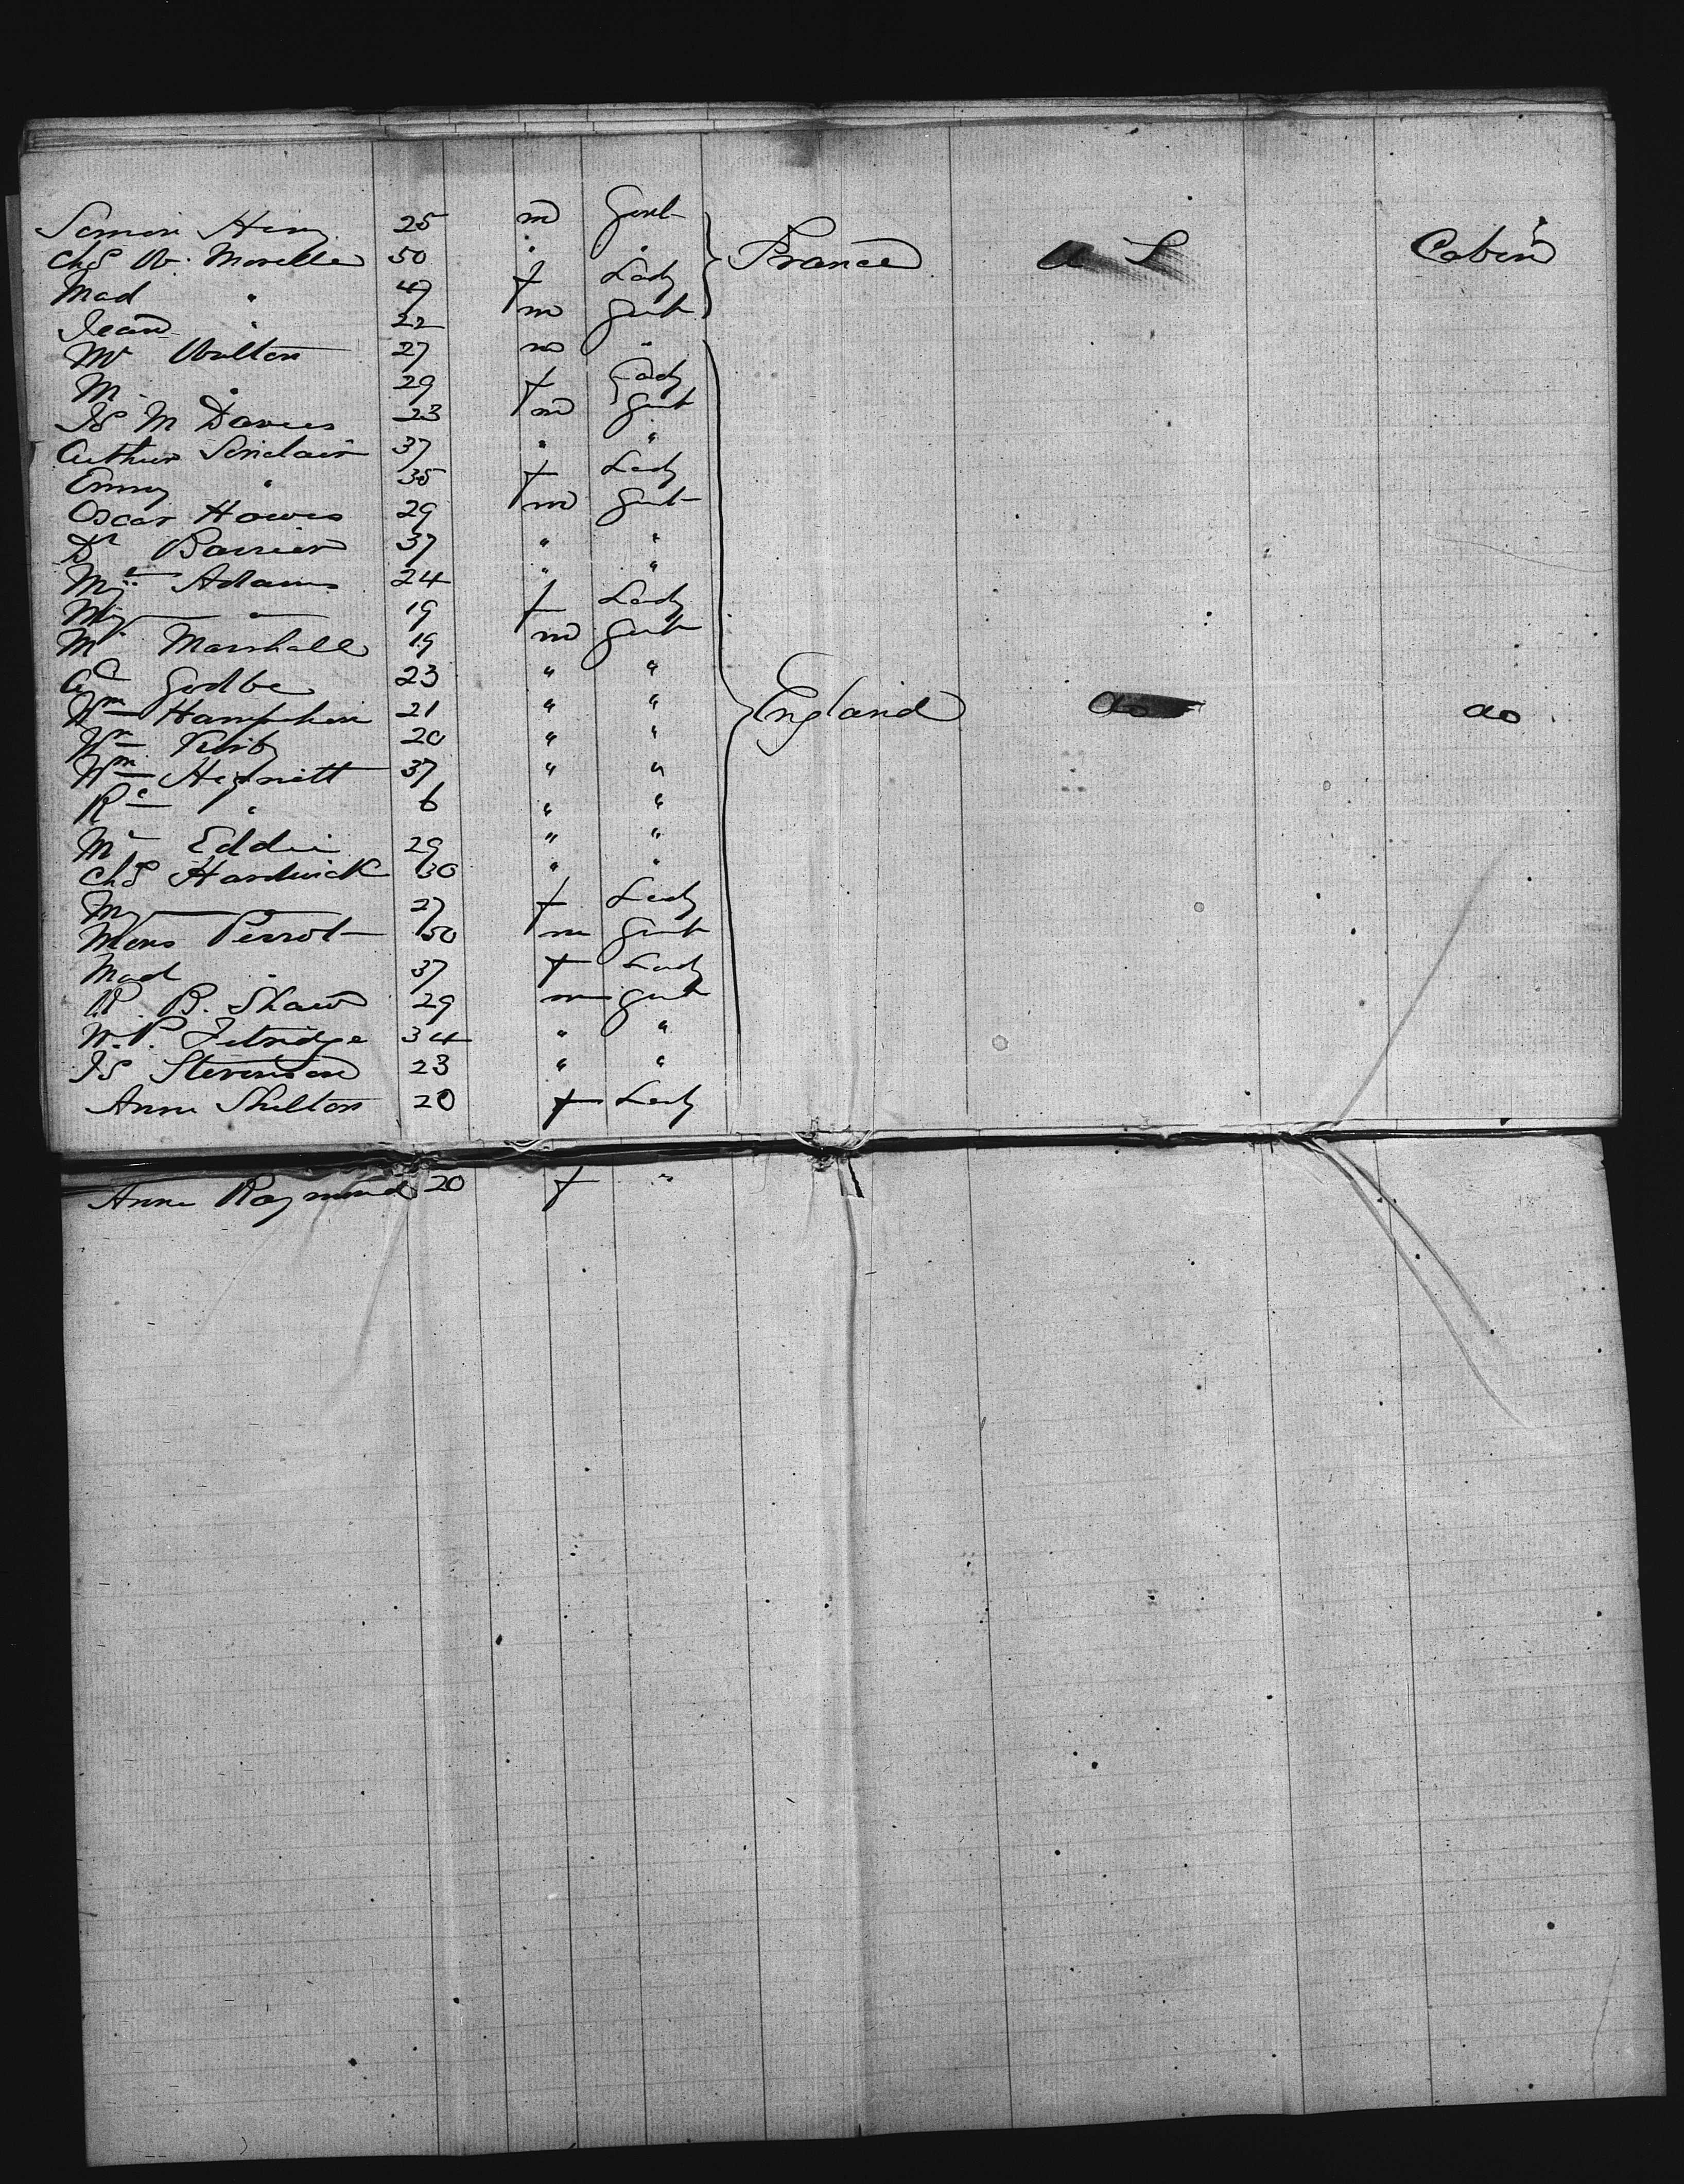 Henry 25 m Gent
Chs W. Morelle 50 " "
Mad " 49 f Lady
Jean " 22 m Gent
France U S Cabin
Mr Walton 27 m "
M " 29 f Lady
Js M Davies 23 m Gent
Arthur Sinclair 37 " "
Emmy " 35 f Lady
Oscar Howes 29 m Gent
Dr 37 " "
Mr Adams 24 " "
" 19 f Lady
Mr Marshall 19 m Gent
Godbe 23 " "
Wm 21 " "
England do do
Wm Kirby 20 " "
Wm 37 " "
Rd " 6 " "
Mr Eddie 29 " "
Chs Hardwick 30 " "
" 27 f Lady
Mons Perrot 50 m Gent
Mad " 37 f Lady
R. B. Shaw 29 m Gent
W. P. Fetridge 34 " "
Js Stevenson 23 " "
Anne Shelton 20 f Lady
Anne Raymond 20 f "